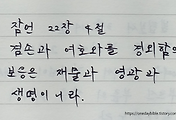 잠언 22장 4절
겸손과 여호와를 경외함의
보응은 재물과 영광과
생명이니라.
https://onedaybible.tistory.com